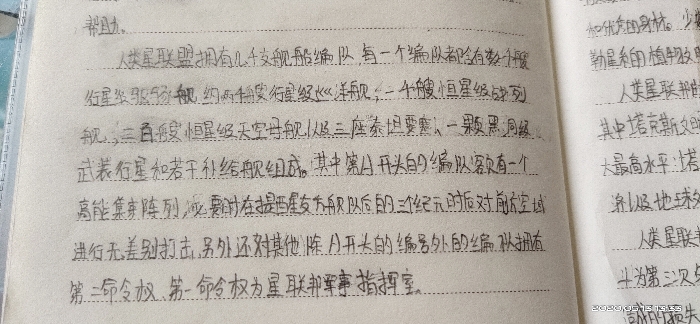 帮助。
人类星联盟拥有几千支舰船编队,每一个编队都会有数千艘
行星级驱逐舰,约两千艘行星级巡洋舰,一千艘恒星级战列
舰,三百艘恒星级太空母舰以及三座泰坦要塞、一颗黑洞级
武装行星和若干补给舰组成。其中第A开头的编队客有一个
高能集束阵列,必要时在提
三个纪元时后对前方空域
进行无差别打击,另外还对其他除A开头的编号外的编队拥有
第二命令权,第一命令权为星联邦军事指挥室。
和优秀的身材。少
勒星系的植物
人类星联邦的
其中塔克斯
大最高水平。塔
洲以及地球
人类星联
斗为第三次
的损失